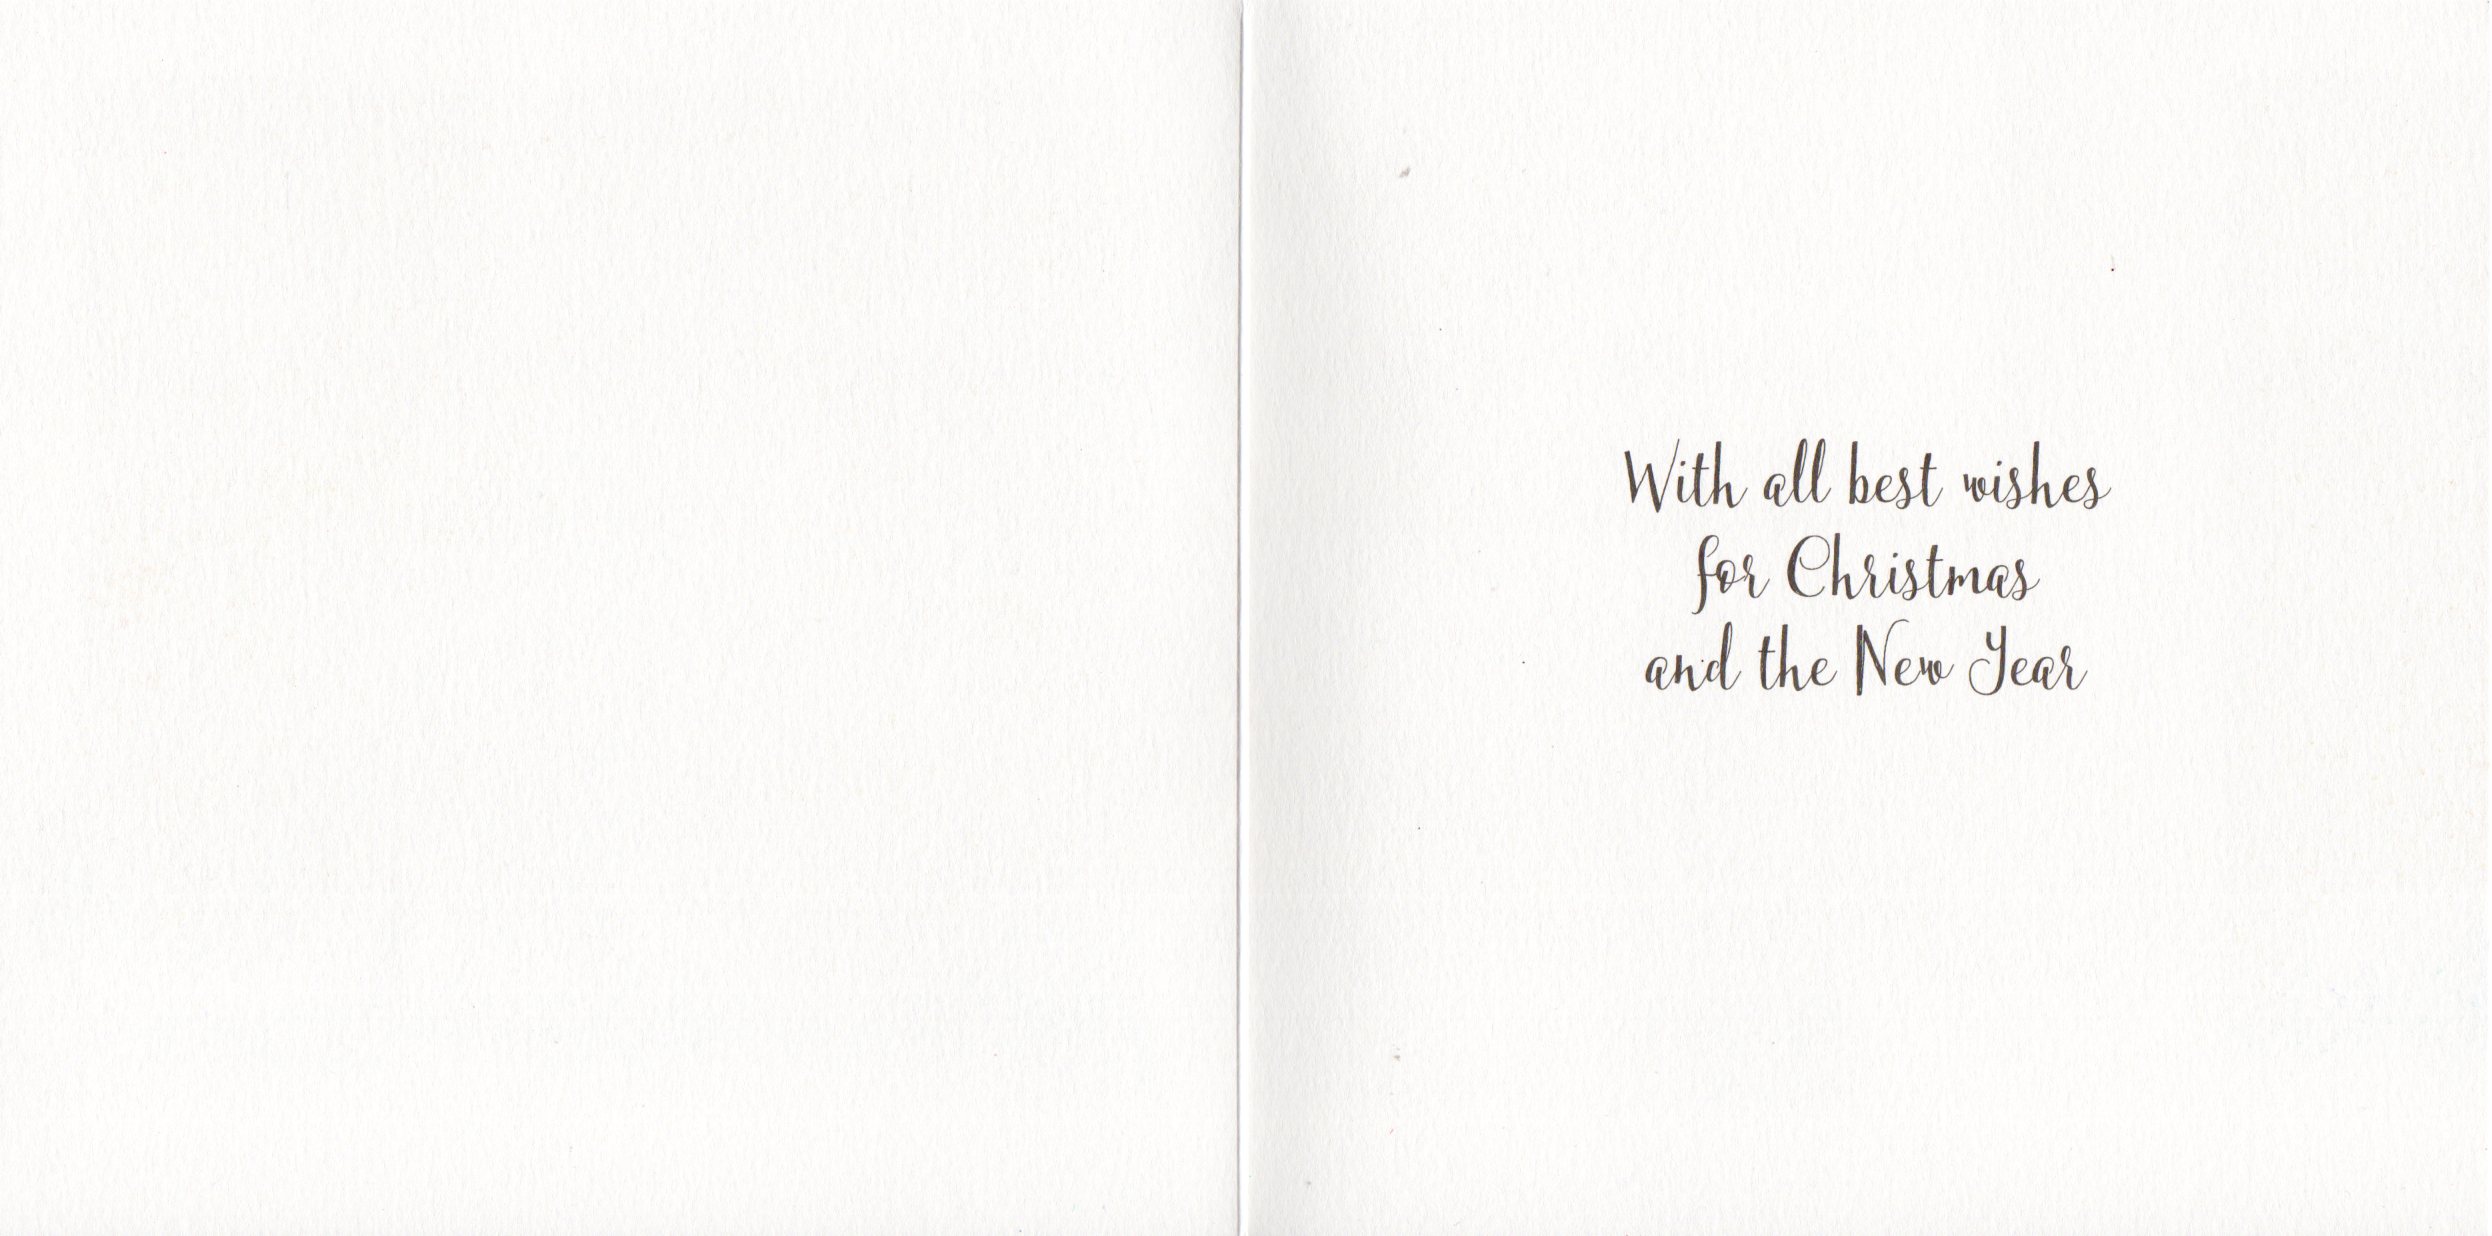 With all best wishes
for Christmas
and the New Year